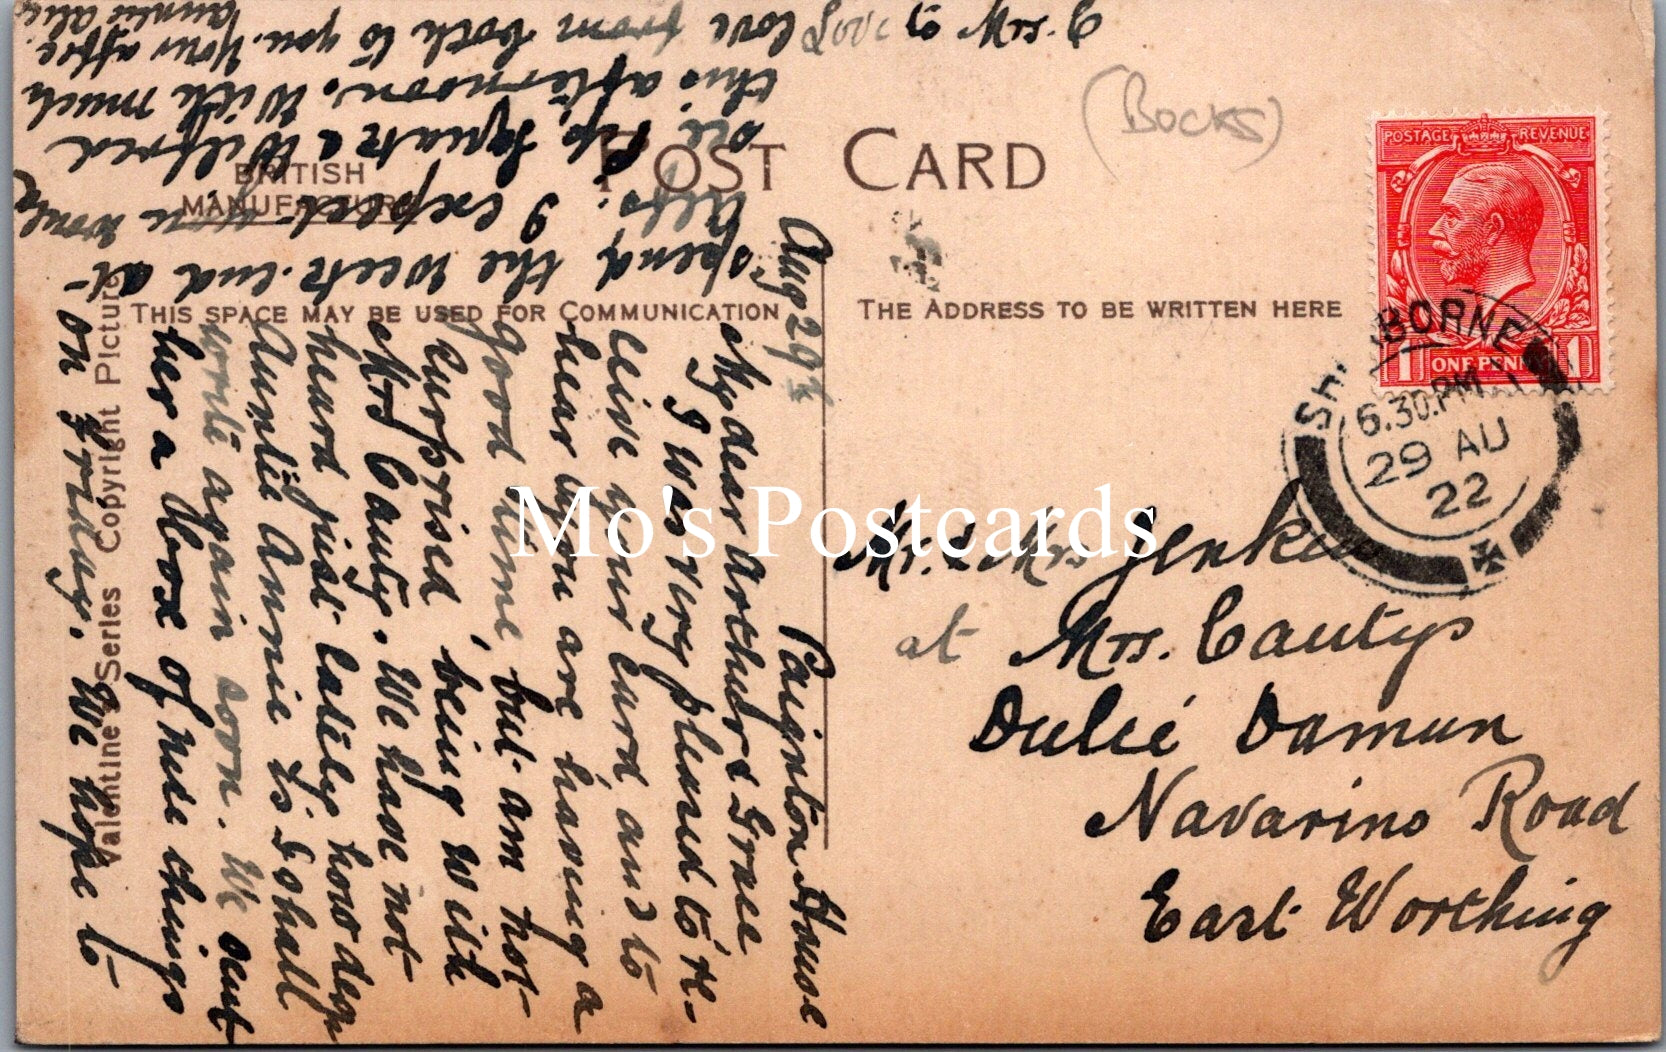 POST CARD
(BOCKS)
BRITISH
MANUFACTURE
THIS SPACE MAY BE USED FOR COMMUNICATION
THE ADDRESS TO BE WRITTEN HERE
Valentine's Series Copyright Picture
POSTAGE REVENUE
1 ONE PENNY 1
SHERBORNE
6.30.PM
29 AU
22
Mr. & Mrs Jenkins
at Mrs. Cautys
Dulce Damun
Navarino Road
East Worthing
Aug 29th
Paignton House
My dear Arthur & Grace
I was very pleased to re-
ceive your card and to
hear you are having a
good time, but am not
surprised, being with
Mrs Cauty. We have not
heard just lately how dear
Auntie Annie is I shall
write again soon. We sent
her a box of nice things
on Friday. We hope to
spend the week-end at
I expect you would
see Wilfred
this afternoon. With much
love from both to you. Your affec.
Auntie
Love to Mrs
Mo's Postcards